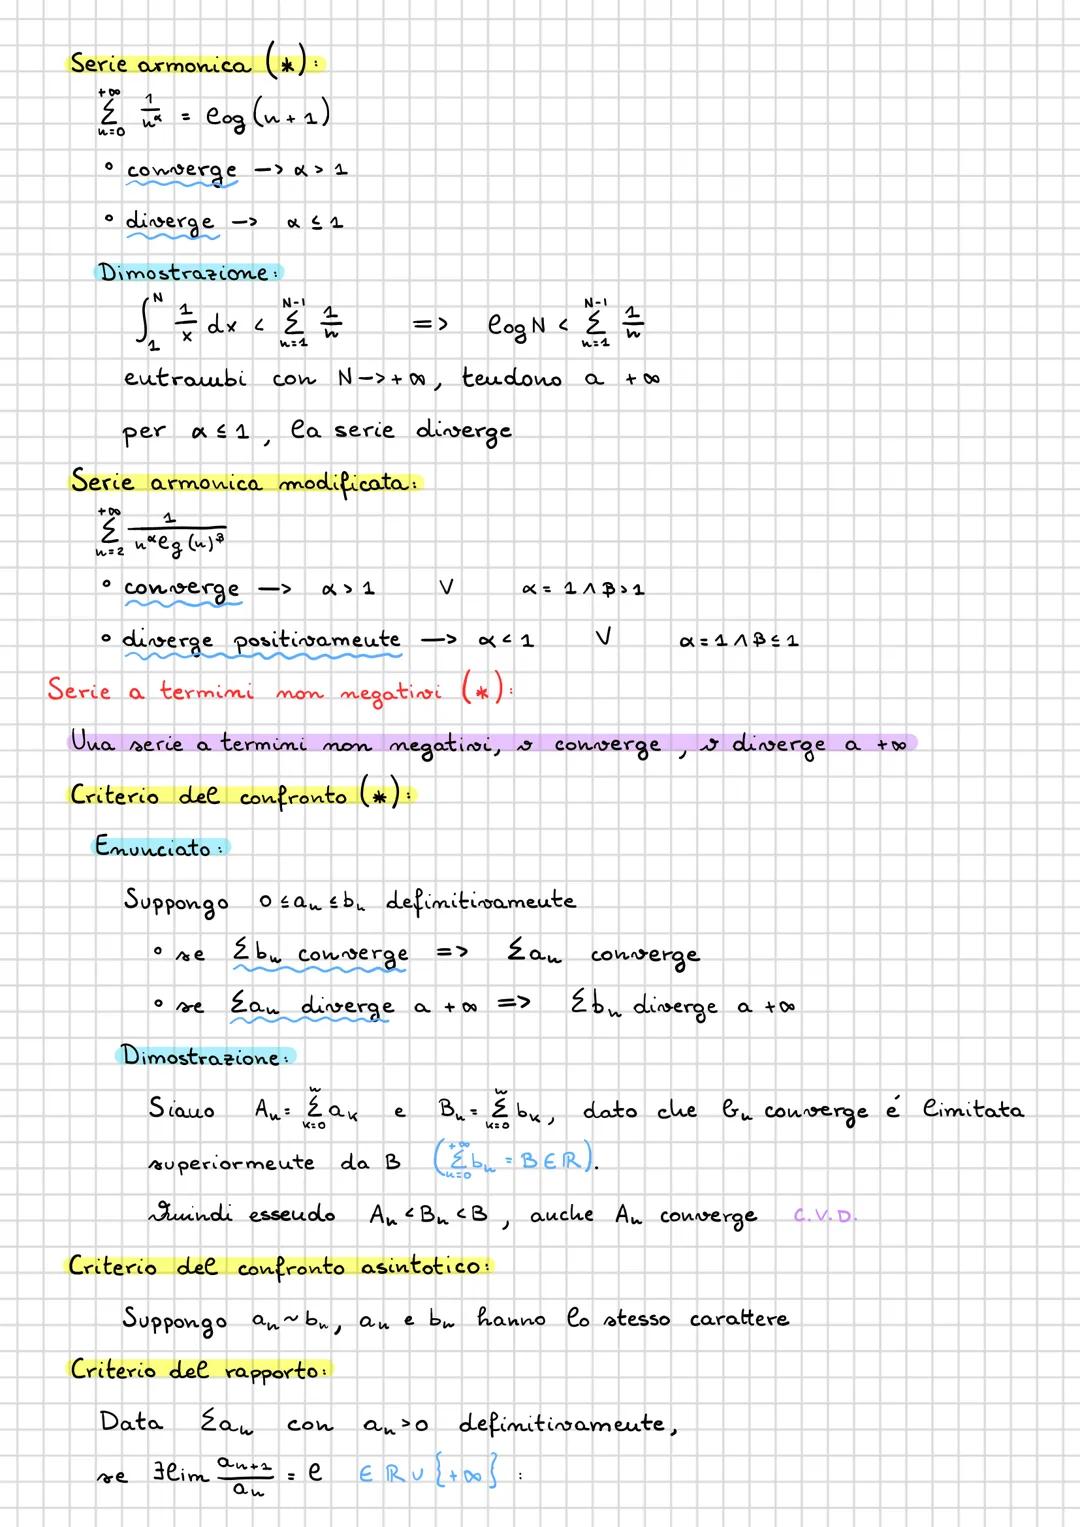 Serie armonica (*):
+∞ Σ n=0 1/n^α = log(n+1)
° converge -> α > 1
° diverge -> α ≤ 1
Dimostrazione:
∫_1^N 1/x dx < Σ_{n=1}^{N-1} 1/n => log N < Σ_{n=1}^{N-1} 1/n
entrambi con N->+∞, tendono a +∞
per α ≤ 1, la serie diverge
Serie armonica modificata:
Σ_{n=2}^{+∞} 1/(n^α lg(n)^β)
° converge -> α > 1 V α = 1 ∧ β > 1
° diverge positivamente -> α < 1 V α = 1 ∧ β ≤ 1
Serie a termini non negativi (*):
Una serie a termini non negativi, o converge, o diverge a +∞
Criterio del confronto (*):
Enunciato:
Suppongo 0 ≤ a_n ≤ b_n definitivamente
° se Σb_n converge => Σa_n converge
° se Σa_n diverge a +∞ => Σb_n diverge a +∞
Dimostrazione:
Siano A_n = Σ_{k=0}^n a_k e B_n = Σ_{k=0}^n b_k, dato che b_n converge é limitata
superiormente da B (Σ_{n=0}^{+∞} b_n = B ∈ ℝ).
Quindi essendo A_n < B_n < B, anche A_n converge C.V.D.
Criterio del confronto asintotico:
Suppongo a_n ~ b_n, a_n e b_n hanno lo stesso carattere
Criterio del rapporto:
Data Σa_n con a_n > 0 definitivamente,
se ∃lim a_{n+1}/a_n = l ∈ ℝ ∪ {+∞} :